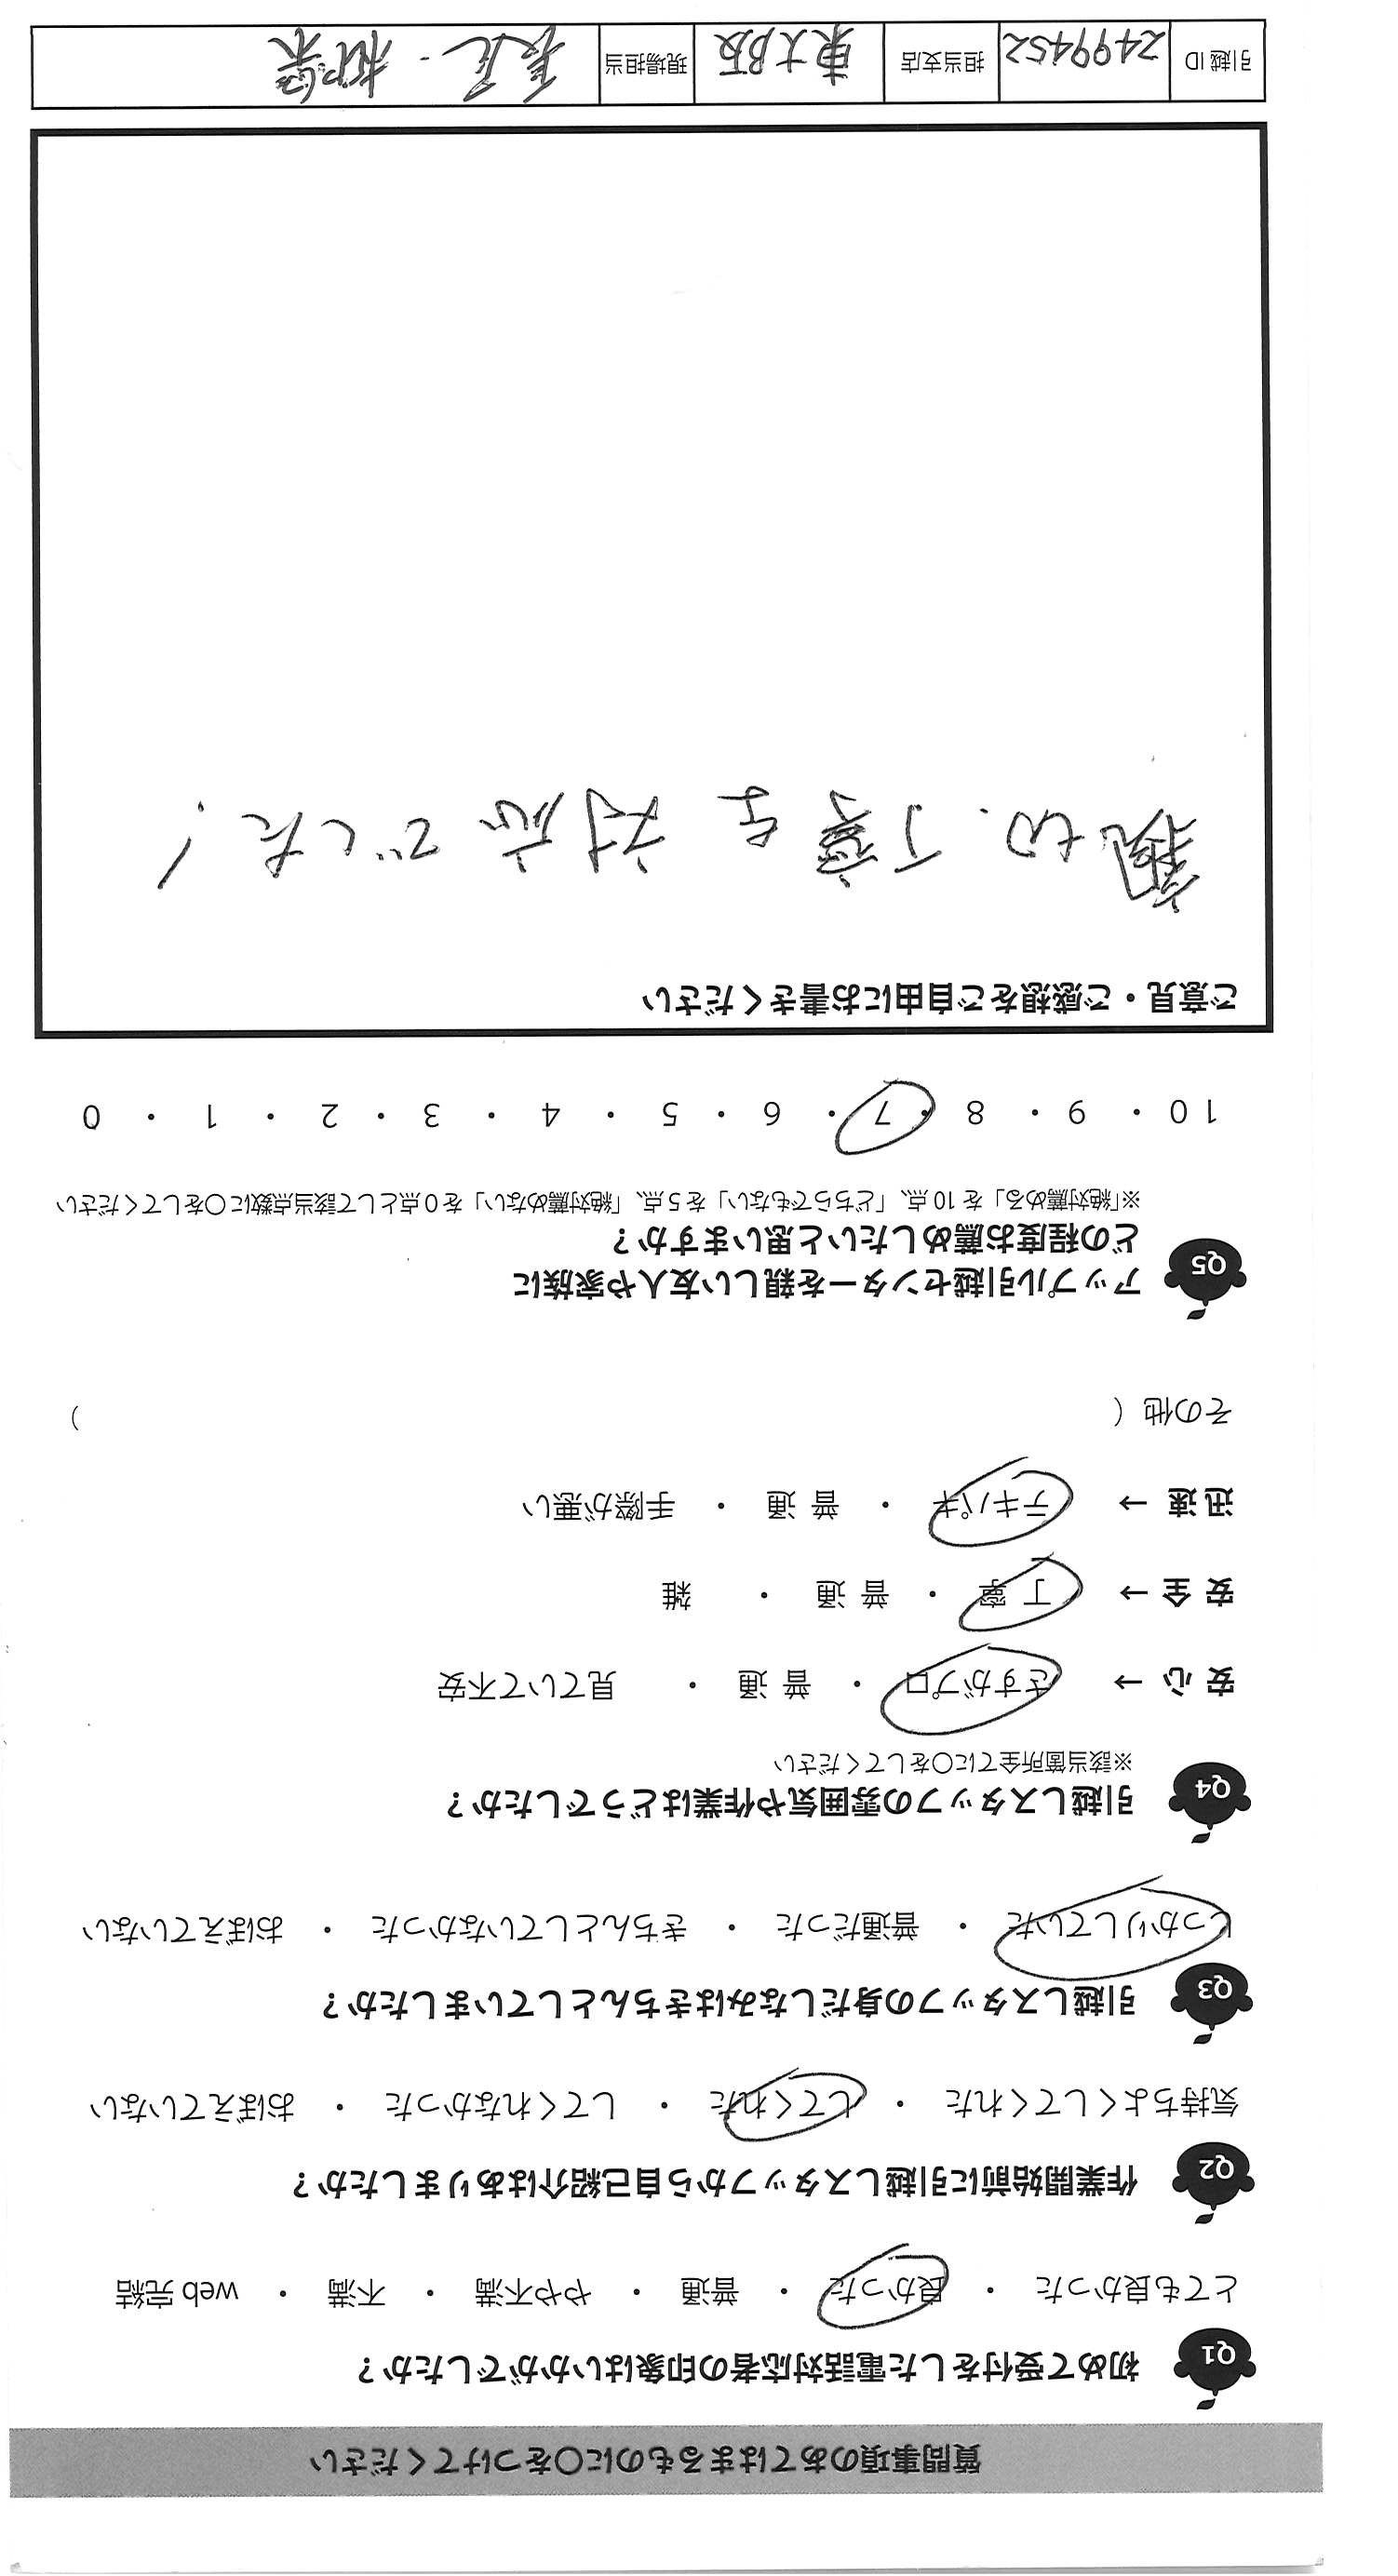 質問事項のあてはまるものに〇をつけてください
Q1 初めて受付をした電話対応者の印象はいかがでしたか?
とても良かった ・ 良かった ・ 普通 ・ やや不満 ・ 不満 ・ web 完結
Q2 作業開始前に引越しスタッフから自己紹介はありましたか?
気持ちよくしてくれた ・ してくれた ・ してくれなかった ・ おぼえていない
Q3 引越しスタッフの身だしなみはきちんとしていましたか?
しっかりしていた ・ 普通だった ・ きちんとしていなかった ・ おぼえていない
Q4 引越しスタッフの雰囲気や作業はどうでしたか?
※該当箇所全てに〇をしてください
安心 → さすがプロ ・ 普通 ・ 見ていて不安
安全 → 丁寧 ・ 普通 ・ 雑
迅速 → テキパキ ・ 普通 ・ 手際が悪い
その他 ( )
Q5 アップル引越センターを親しい友人や家族に
どの程度お薦めしたいと思いますか?
※「絶対薦める」を 10 点、「どちらでもない」を 5 点、「絶対薦めない」を 0 点として該当点数に〇をしてください
10 ・ 9 ・ 8 ・ 7 ・ 6 ・ 5 ・ 4 ・ 3 ・ 2 ・ 1 ・ 0
ご意見・ご感想をご自由にお書きください
親切、丁寧な対応でした!
引越 ID 2499452 担当支店 東大阪 現場担当